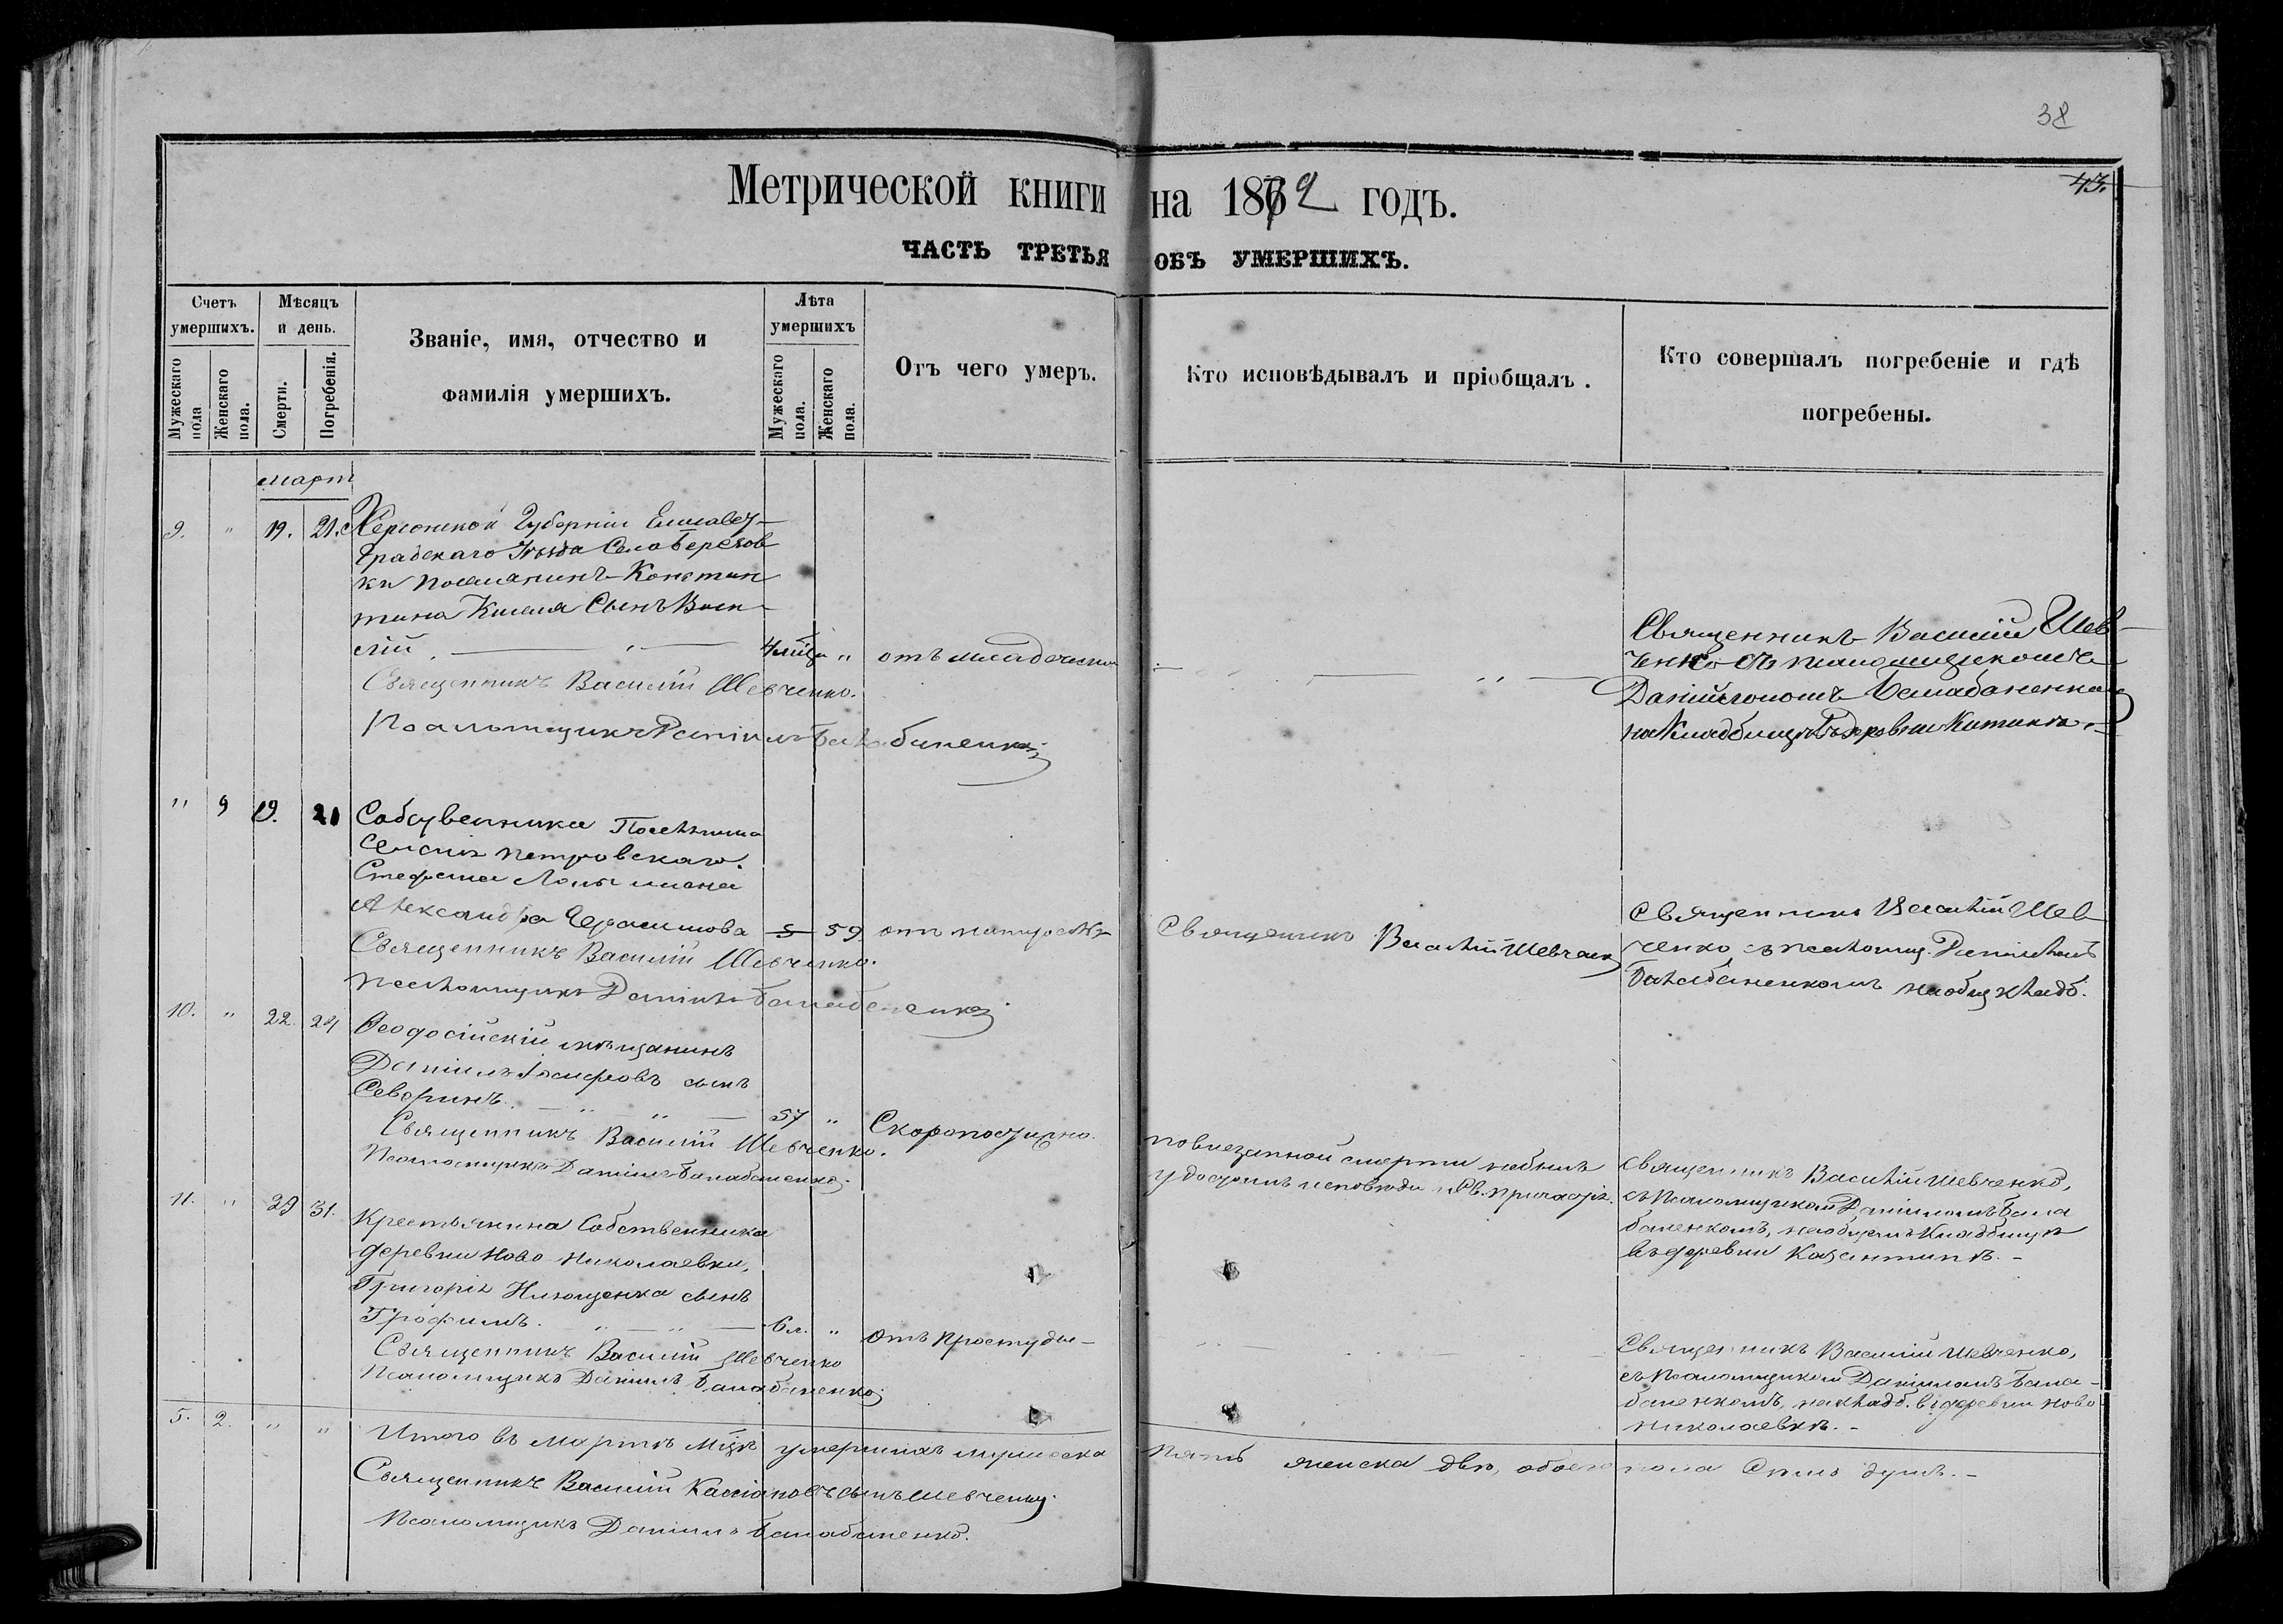 38
43.
Метрической книги на 1872 годъ.
ЧАСТЬ ТРЕТЬЯ ОБЪ УМЕРШИХЪ.
Счетъ умершихъ.
Мужескаго пола
Женскаго пола.
Мѣсяцъ и день.
Смерти.
Погребенія.
Званіе, имя, отчество и
фамилія умершихъ.
Лѣта умершихъ
Мужескаго пола.
Женскаго пола.
Отъ чего умеръ.
Кто исповѣдывалъ и пріобщалъ.
Кто совершалъ погребеніе и гдѣ
погребены.
март
9. " 19. 21. Херсонской Губерніи Елисавет-
градскаго Уѣзда Села Березов
ки поселянинъ Констан
тина Сынъ Васи-
лій 4 "
Священникъ Василій Шевченко.
Псаломщикъ Даніилъ Балабаненко
Священникъ Василій Шев-
ченко съ псаломщикомъ
Даніиломъ Балабаненком
на Кладбищѣ деревни
" 9 19. 21 Собственника Поселянина
Петровскаго.
Стефана жена
Александра Герасимова 59
Священникъ Василій Шевченко.
псаломщикъ Даніилъ Балабаненко
Священникъ Василій Шевченко
Священникъ Василій Шев
ченко съ псаломщ. Даніиломъ
Балабаненкомъ на общ кладб.
10. " 22. 24 Ѳеодосійскій мѣщанинъ
Даніилъ Іосифовъ сынъ
Северинъ. 57 " Скоропостижно.
Священникъ Василій Шевченко.
Псаломщикъ Даніилъ Балабаненко
По внезапной смерти небылъ
удостоенъ исповѣди и Св. причастія.
Священникъ Василій Шевченко,
съ Псаломщикомъ Даніиломъ Бала
баненкомъ, на общемъ Кладбищѣ
въ деревни Казантипѣ. -
11. " 29 31. Крестьянина Собственника
деревни Ново Николаевки,
Григорія сынъ
Трофимъ. 6 л. " Отъ Простуды -
Священникъ Василій Шевченко
Псаломщикъ Даніилъ Балабаненко
Священникъ Василій Шевченко,
съ Псаломщикомъ Даніиломъ Бала-
баненкомъ, на кладб. в деревни Ново
Николаевкѣ. -
5. 2. " " Итого въ Мартѣ мѣцѣ умершихъ мужеска Пять женска двѣ, обоего пола Семь душъ. -
Священникъ Василій Кассіановъ сынъ Шевченко
Псаломщикъ Даніилъ Балабаненко.